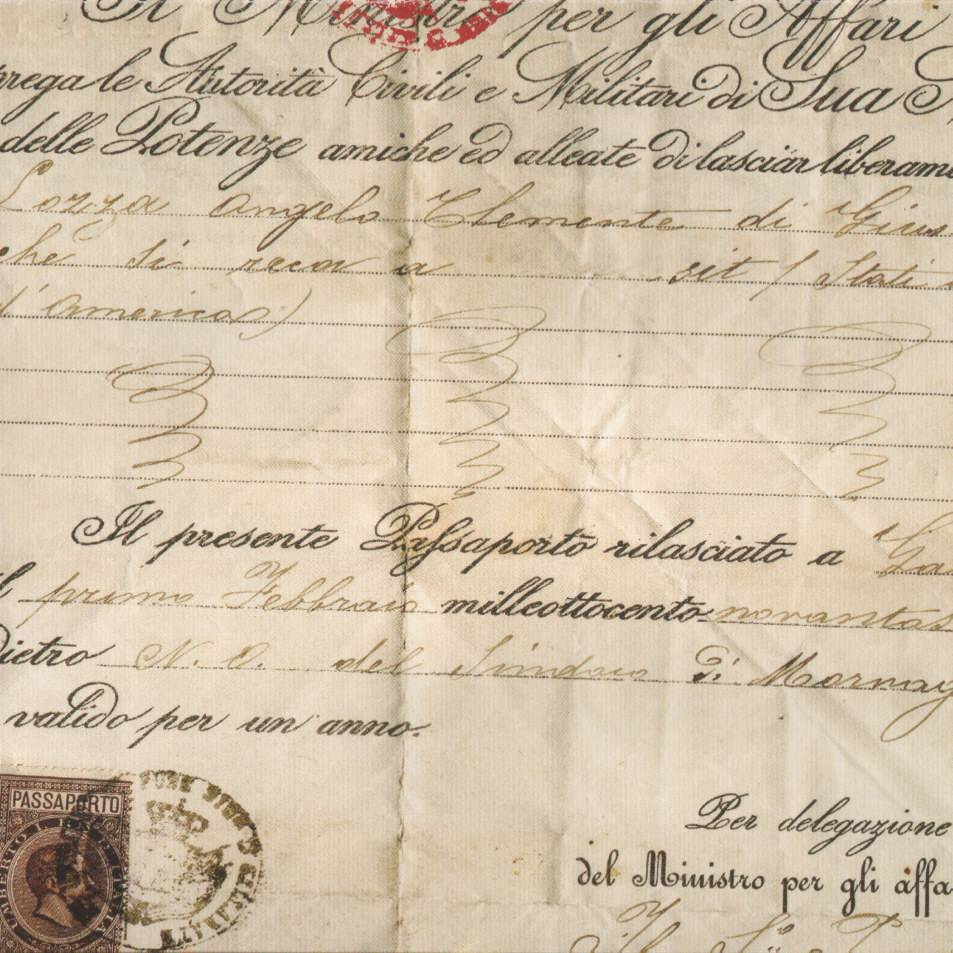 Il Ministro per gli Affari
prega le Autorità Civili e Militari di Sua
delle Potenze amiche ed alleate di lasciar liberam
Angelo Clemente di Gius
che si reca a / Stati
d'America)
Il presente Passaporto rilasciato a
primo Febbraio milleottocento novantas
dietro N. O. del Sindaco di Mornag
valido per un anno.
PASSAPORTO
UMBERTO I RE D'ITALIA
Per delegazione
del Ministro per gli affa